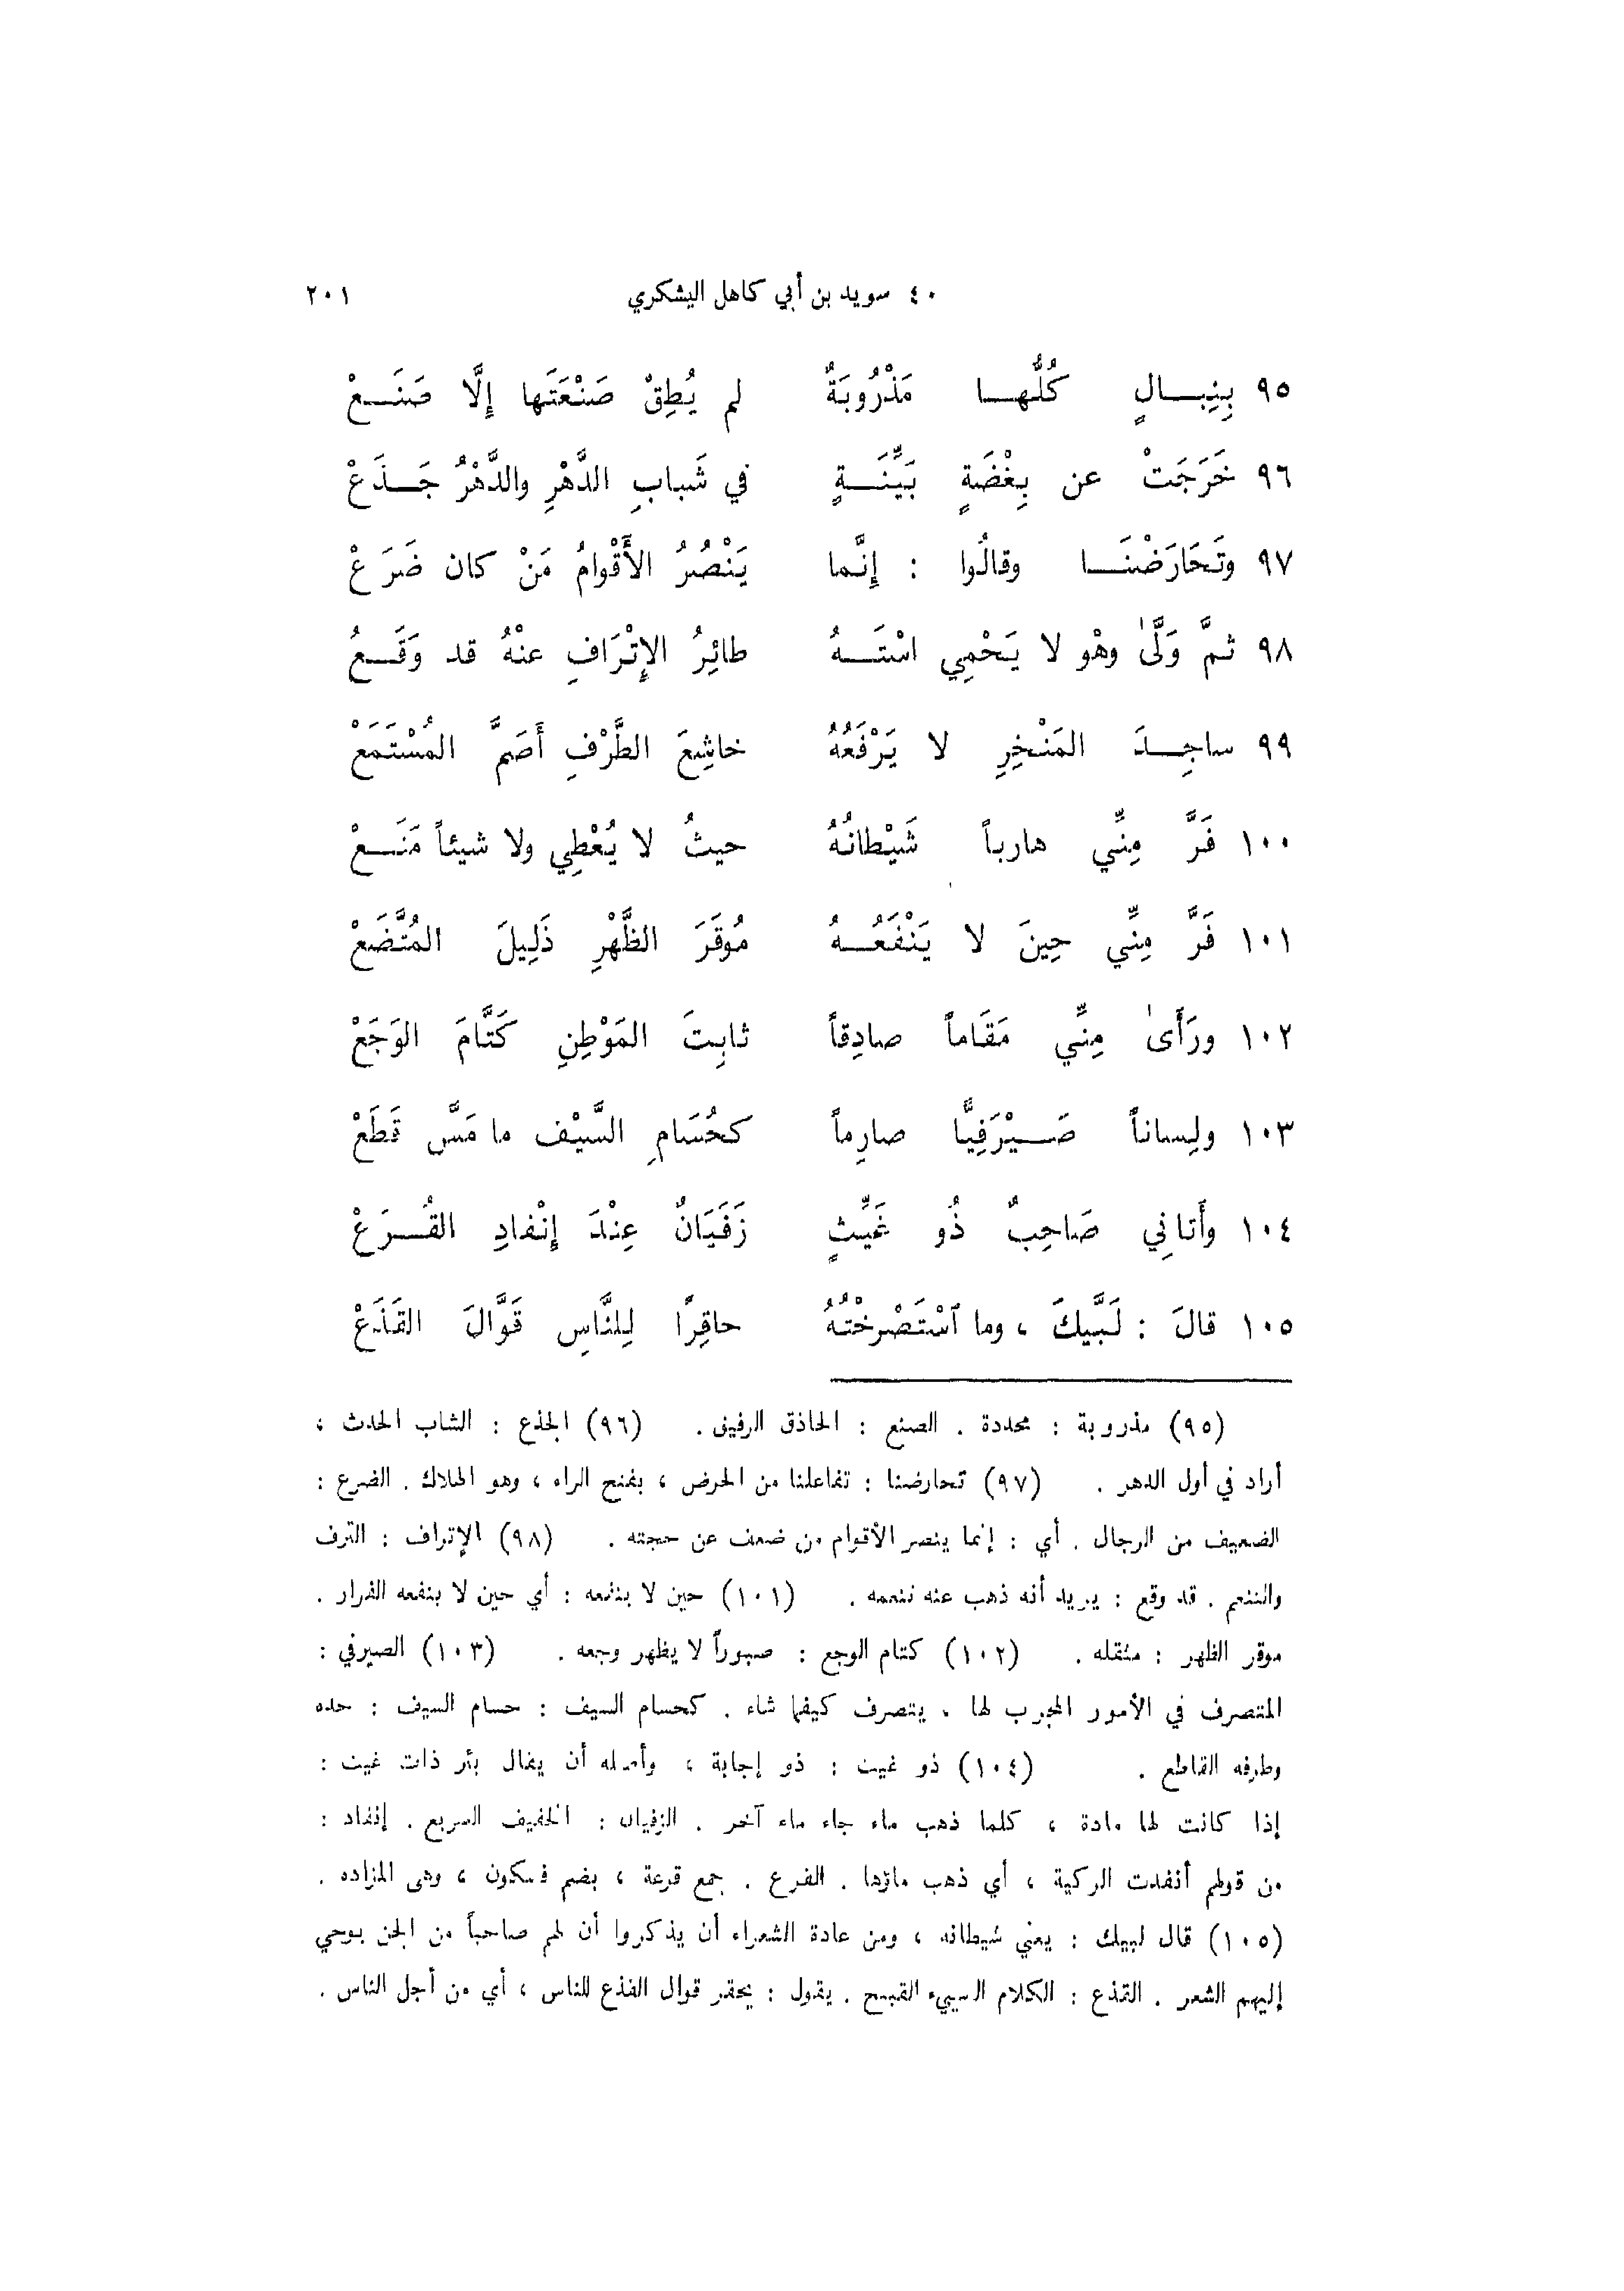 ٤٠ سويد بن أبي كاهل اليشكري ٢٠١
٩٥ بِنِبــالٍ كُلُّهــا مَذْرُوبَةٌ لم يُطِقْ صَنْعَتَها إِلَّا صَنَــعْ
٩٦ خَرَجَتْ عن بِغْضَةٍ بَيِّنَــةٍ في شَبابِ الدَّهْرِ والدَّهْرُ جَــذَعْ
٩٧ وتَحَارَضْنَــا وقالُوا : إِنَّما يَنْصُرُ الأَقْوامُ مَنْ كان ضَرَعْ
٩٨ ثمَّ وَلَّىٰ وهْو لا يَحْمِي اسْتَــهُ طائِرُ الإِتْرَافِ عنْهُ قد وَقَــعُ
٩٩ ساجِــدَ المَنْخِرِ لا يَرْفَعُهُ خاشِعَ الطَّرْفِ أَصَمَّ المُسْتَمَعْ
١٠٠ فَرَّ مِنِّي هارباً شَيْطانُهُ حيثُ لا يُعْطِي ولا شيئاً مَنَــعْ
١٠١ فَرَّ مِنِّي حِينَ لا يَنْفَعُــهُ مُوقَرَ الظَّهْرِ ذَلِيلَ المُتَّضَعْ
١٠٢ ورَأَىٰ مِنِّي مَقَاماً صادِقاً ثابِتَ المَوْطِنِ كَتَّامَ الوَجَعْ
١٠٣ ولِساناً صَــيْرَفِيًّا صارِماً كحُسَامِ السَّيْف ما مَسَّ قَطَعْ
١٠٤ وأَتانِي صَاحِبٌ ذُو غَيِّثٍ زَفَيَانٌ عِنْدَ إِنْفادِ القُــرَعْ
١٠٥ قالَ : لَبَّيكَ ، وما ٱسْتَصْرخْتُهُ حاقِرًا لِلنَّاسِ قَوَّالَ القَذَعْ
(٩٥) مذروبة : محددة . الصنع : الحاذق الرفيق . (٩٦) الجذع : الشاب الحدث ،
أراد في أول الدهر . (٩٧) تحارضنا : تفاعلنا من الحرض ، بفتح الراء ، وهو الهلاك . الضرع :
الضعيف من الرجال . أي : إنما ينصر الأقوام من ضعف عن حجته . (٩٨) الإتراف : الترف
والتنعم . قد وقع : يريد أنه ذهب عنه تنعمه . (١٠١) حين لا ينفعه : أي حين لا ينفعه الفرار .
موقر الظهر : مثقله . (١٠٢) كتام الوجع : صبوراً لا يظهر وجعه . (١٠٣) الصيرفي :
المتصرف في الأمور المجرب لها ، يتصرف كيفما شاء . كحسام السيف : حسام السيف : حده
وطرفه القاطع . (١٠٤) ذو غيث : ذو إجابة ، وأصله أن يقال بئر ذات غيث :
إذا كانت لها مادة ، كلما ذهب ماء جاء ماء آخر . الزفيان : الخفيف السريع . إنفاد :
من قولهم أنفدت الركية ، أي ذهب ماؤها . القرع . جمع قرعة ، بضم فسكون ، وهى المزاده .
(١٠٥) قال لبيك : يعني شيطانه ، ومن عادة الشعراء أن يذكروا أن لهم صاحباً من الجن يوحي
إليهم الشعر . القذع : الكلام السيىء القبيح . يقول : يحقر قوال القذع للناس ، أي من أجل الناس .